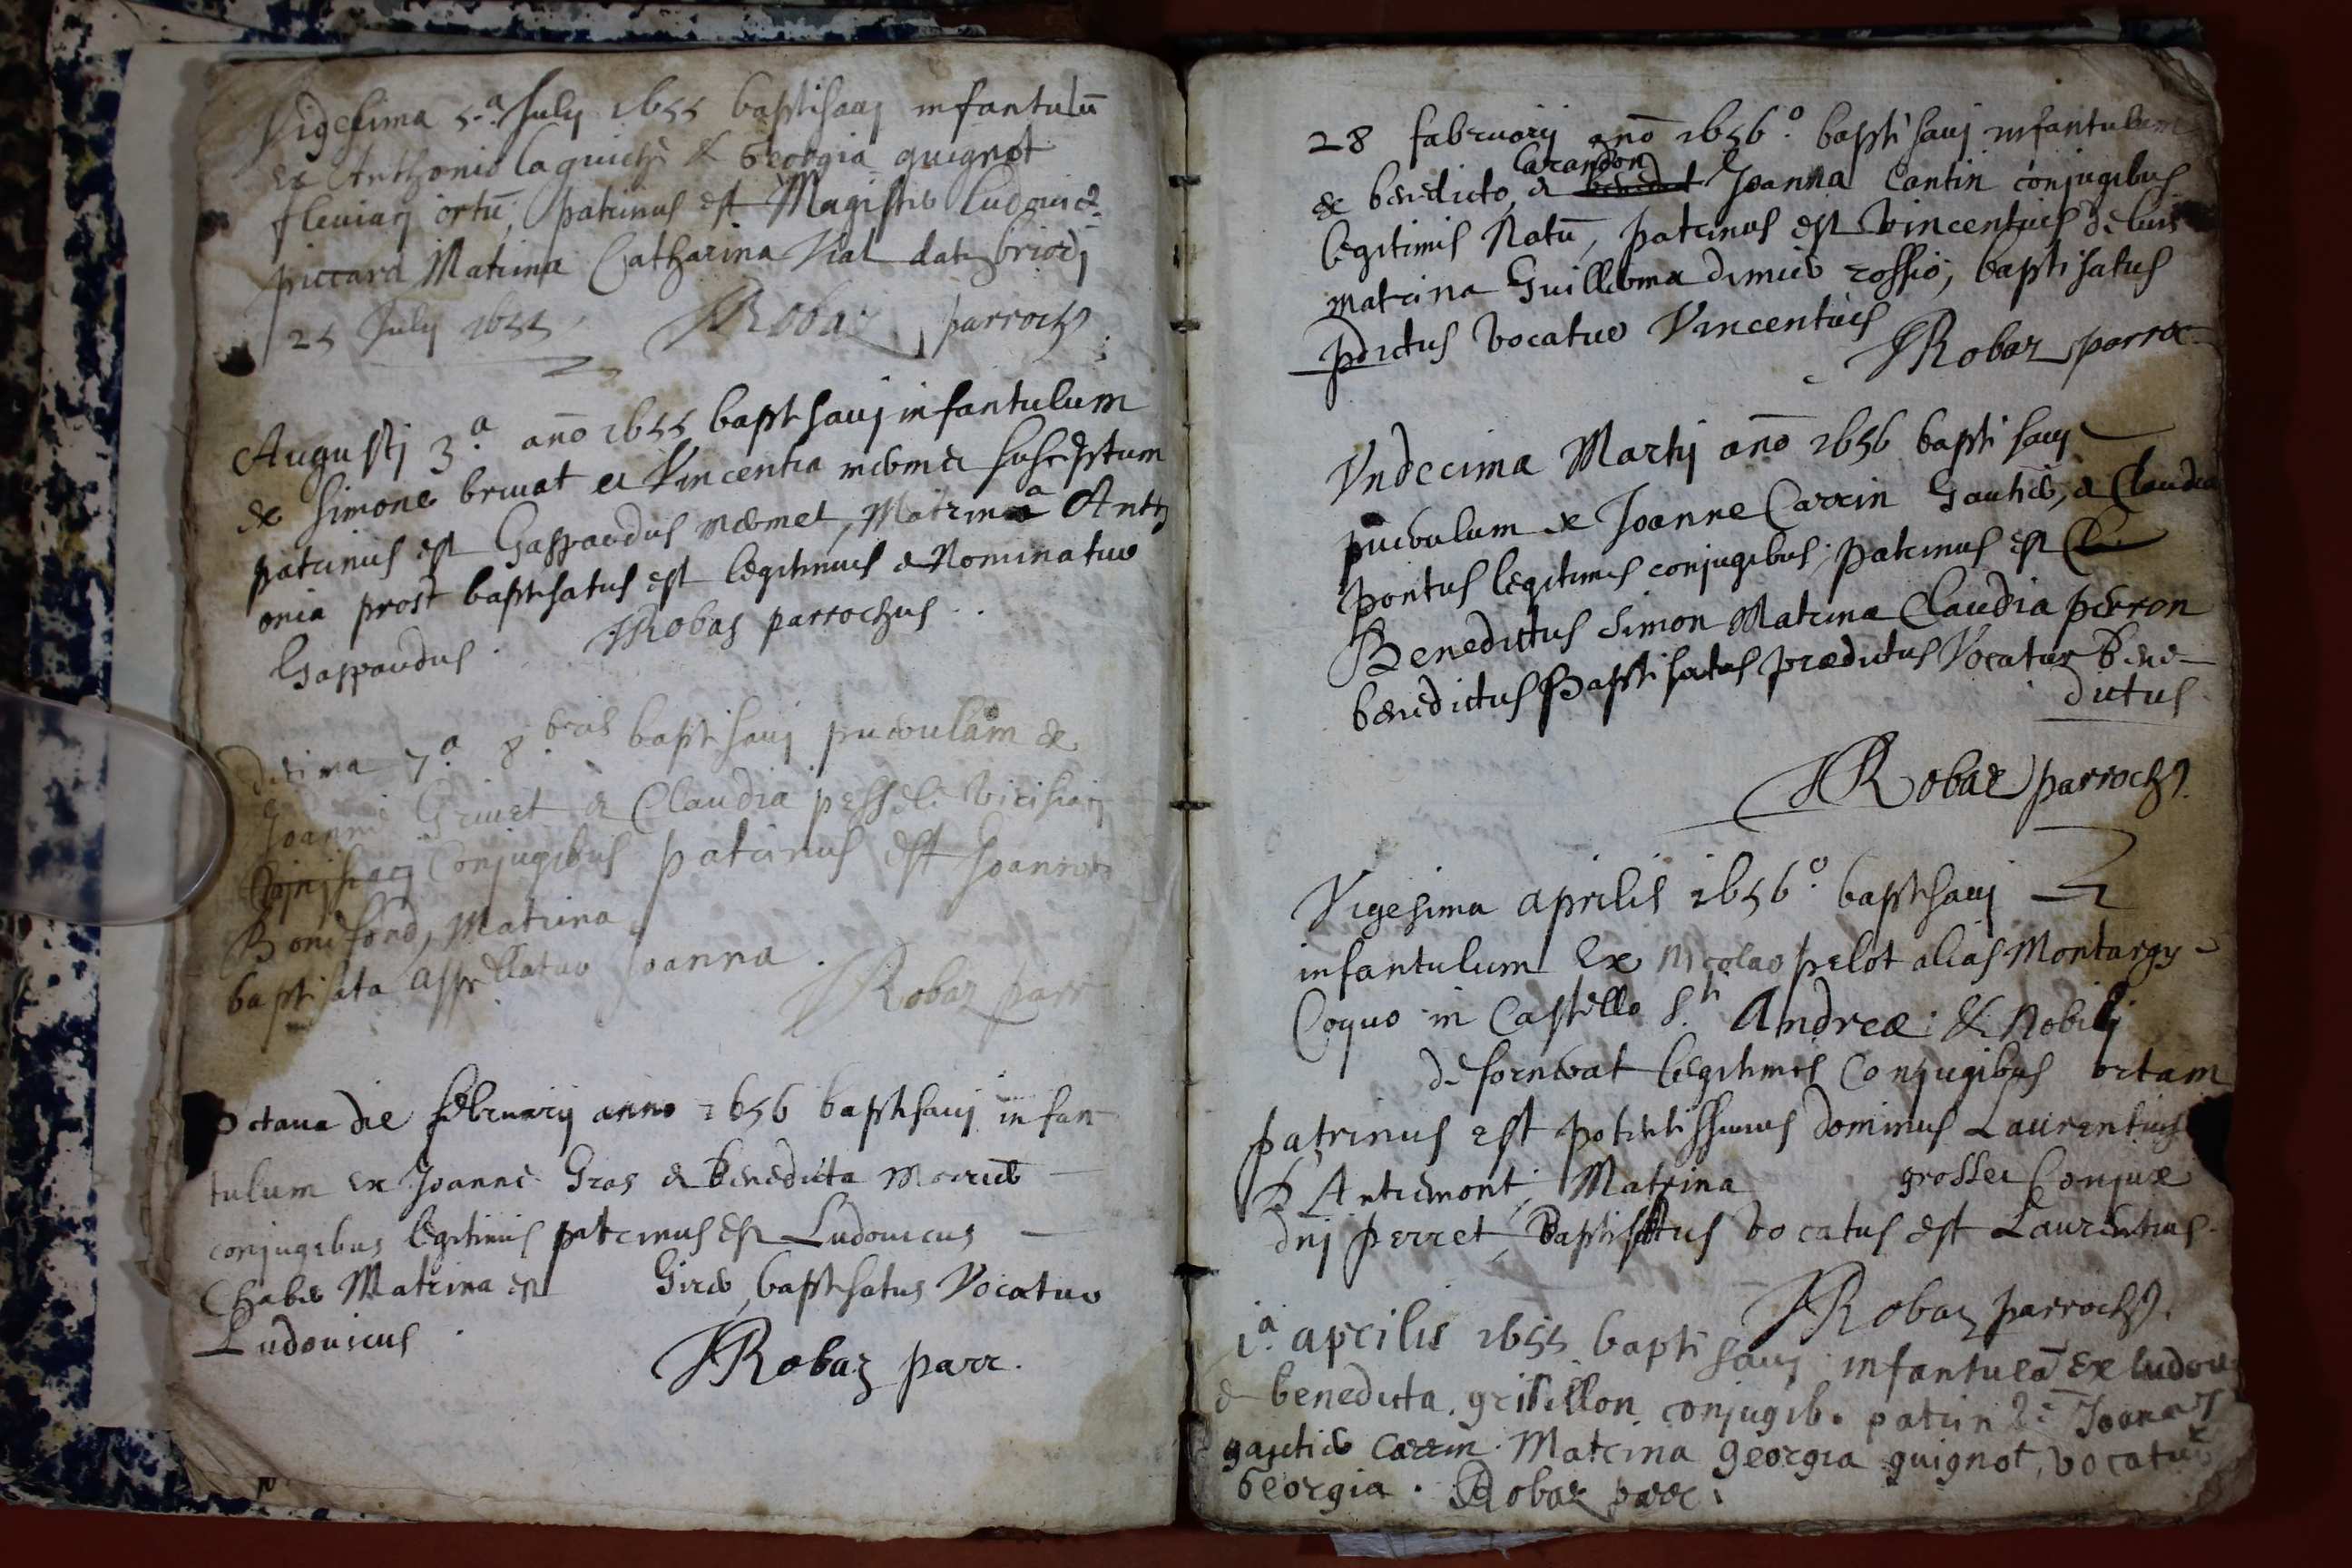 Vigesima 5.ª July 1655 baptisavj infantulū
ex Anthonio laguiche & Georgia guignot
fleuiarj ortū, patrinus est Magister Ludouic9
piccard Matrina Catharina Vial dat briordj
25 July 1655 JRobaz parroch9
Augustj 3.ª año 1655 baptisauj infantulum
ex Simone bruat et Vincentia susceptum
patrinus est Gaspardus mermet, Matrina Anth
onia prost baptisatus est legitimus & Nominatur
Gaspardus. JRobaz parrochus.
decima 7.ª 8.bris baptisauj puerulam ex
Joanne Griuet & Claudia pesseli
Conjugibus patrinus est Joannes
Bonifond, Matrina
baptisata appellatur Joanna.
JRobaz parr
octaua die februarij anno 1656 baptisauj infan
tulum ex Joanne Gras & Benedicta
conjugibus legitimis patrinus est Ludouicus
Chaber Matrina est Girer, baptisatus Vocatur
Ludouicus.
JRobaz parr.
28 februarij año 1656.º baptisauj infantulum
Carandon
ex benedicto & Joanna Cantin conjugibus
legitimis Natū, patrinus est Vincentius de luis
matrina Guillerma dimier rossio, baptisatus
pdictus vocatur Vincentius
JRobaz parroc
Vndecima Martij año 1656 baptisauj
puerulum ex Joanne Carrin Gautier, & Claudia
pontus legitimis conjugibus, patrinus est
Benedictus Simon Matrina Claudia perron
benedictus Baptisatus prædictus Vocatur Bene-
dictus.
JRobaz parroch9
Vigesima aprilis 1656.º baptisauj
infantulum Ex Nicolao pelot alias Montargy
Coquo in Castello S.ti Andreæ & Nobili
de fornerat legitimis Conjugibus ortam
patrinus est potentissimus dominus Laurentius
D'Antremont, Matrina grosset Conjux
dnj perret, Baptisatus vocatus est Laurentius.
JRobaz parroch9.
1.ª aprilis 1655 baptisauj infantulā Ex ludou
& benedicta grisillon conjugib. patrin9 Joanes
gautier carrin. Matrina georgia guignot, vocatur
Georgia. JRobaz parr.